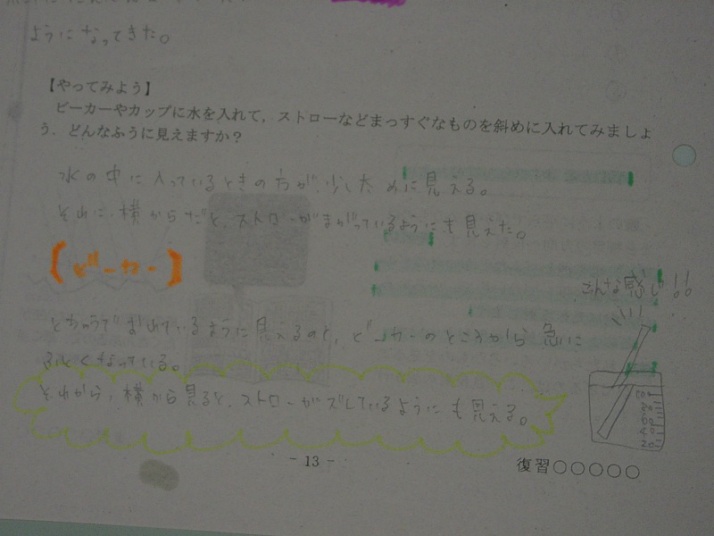 ようになってきた。
【やってみよう】
ビーカーやカップに水を入れて，ストローなどまっすぐなものを斜めに入れてみましょ
う．どんなふうに見えますか？
水の中に入っているときの方が、少しためめに見える。
それに横からだと、ストローがまがっているようにも見えた。
【ビーカー】
とちゅうでおれているように見えるのと、ビーカーのところから急に
ふとくなっている。
それから、横から見ると、ストローがズレているようにも見える。
こんな感じ!!
- 13 -
復習○○○○○